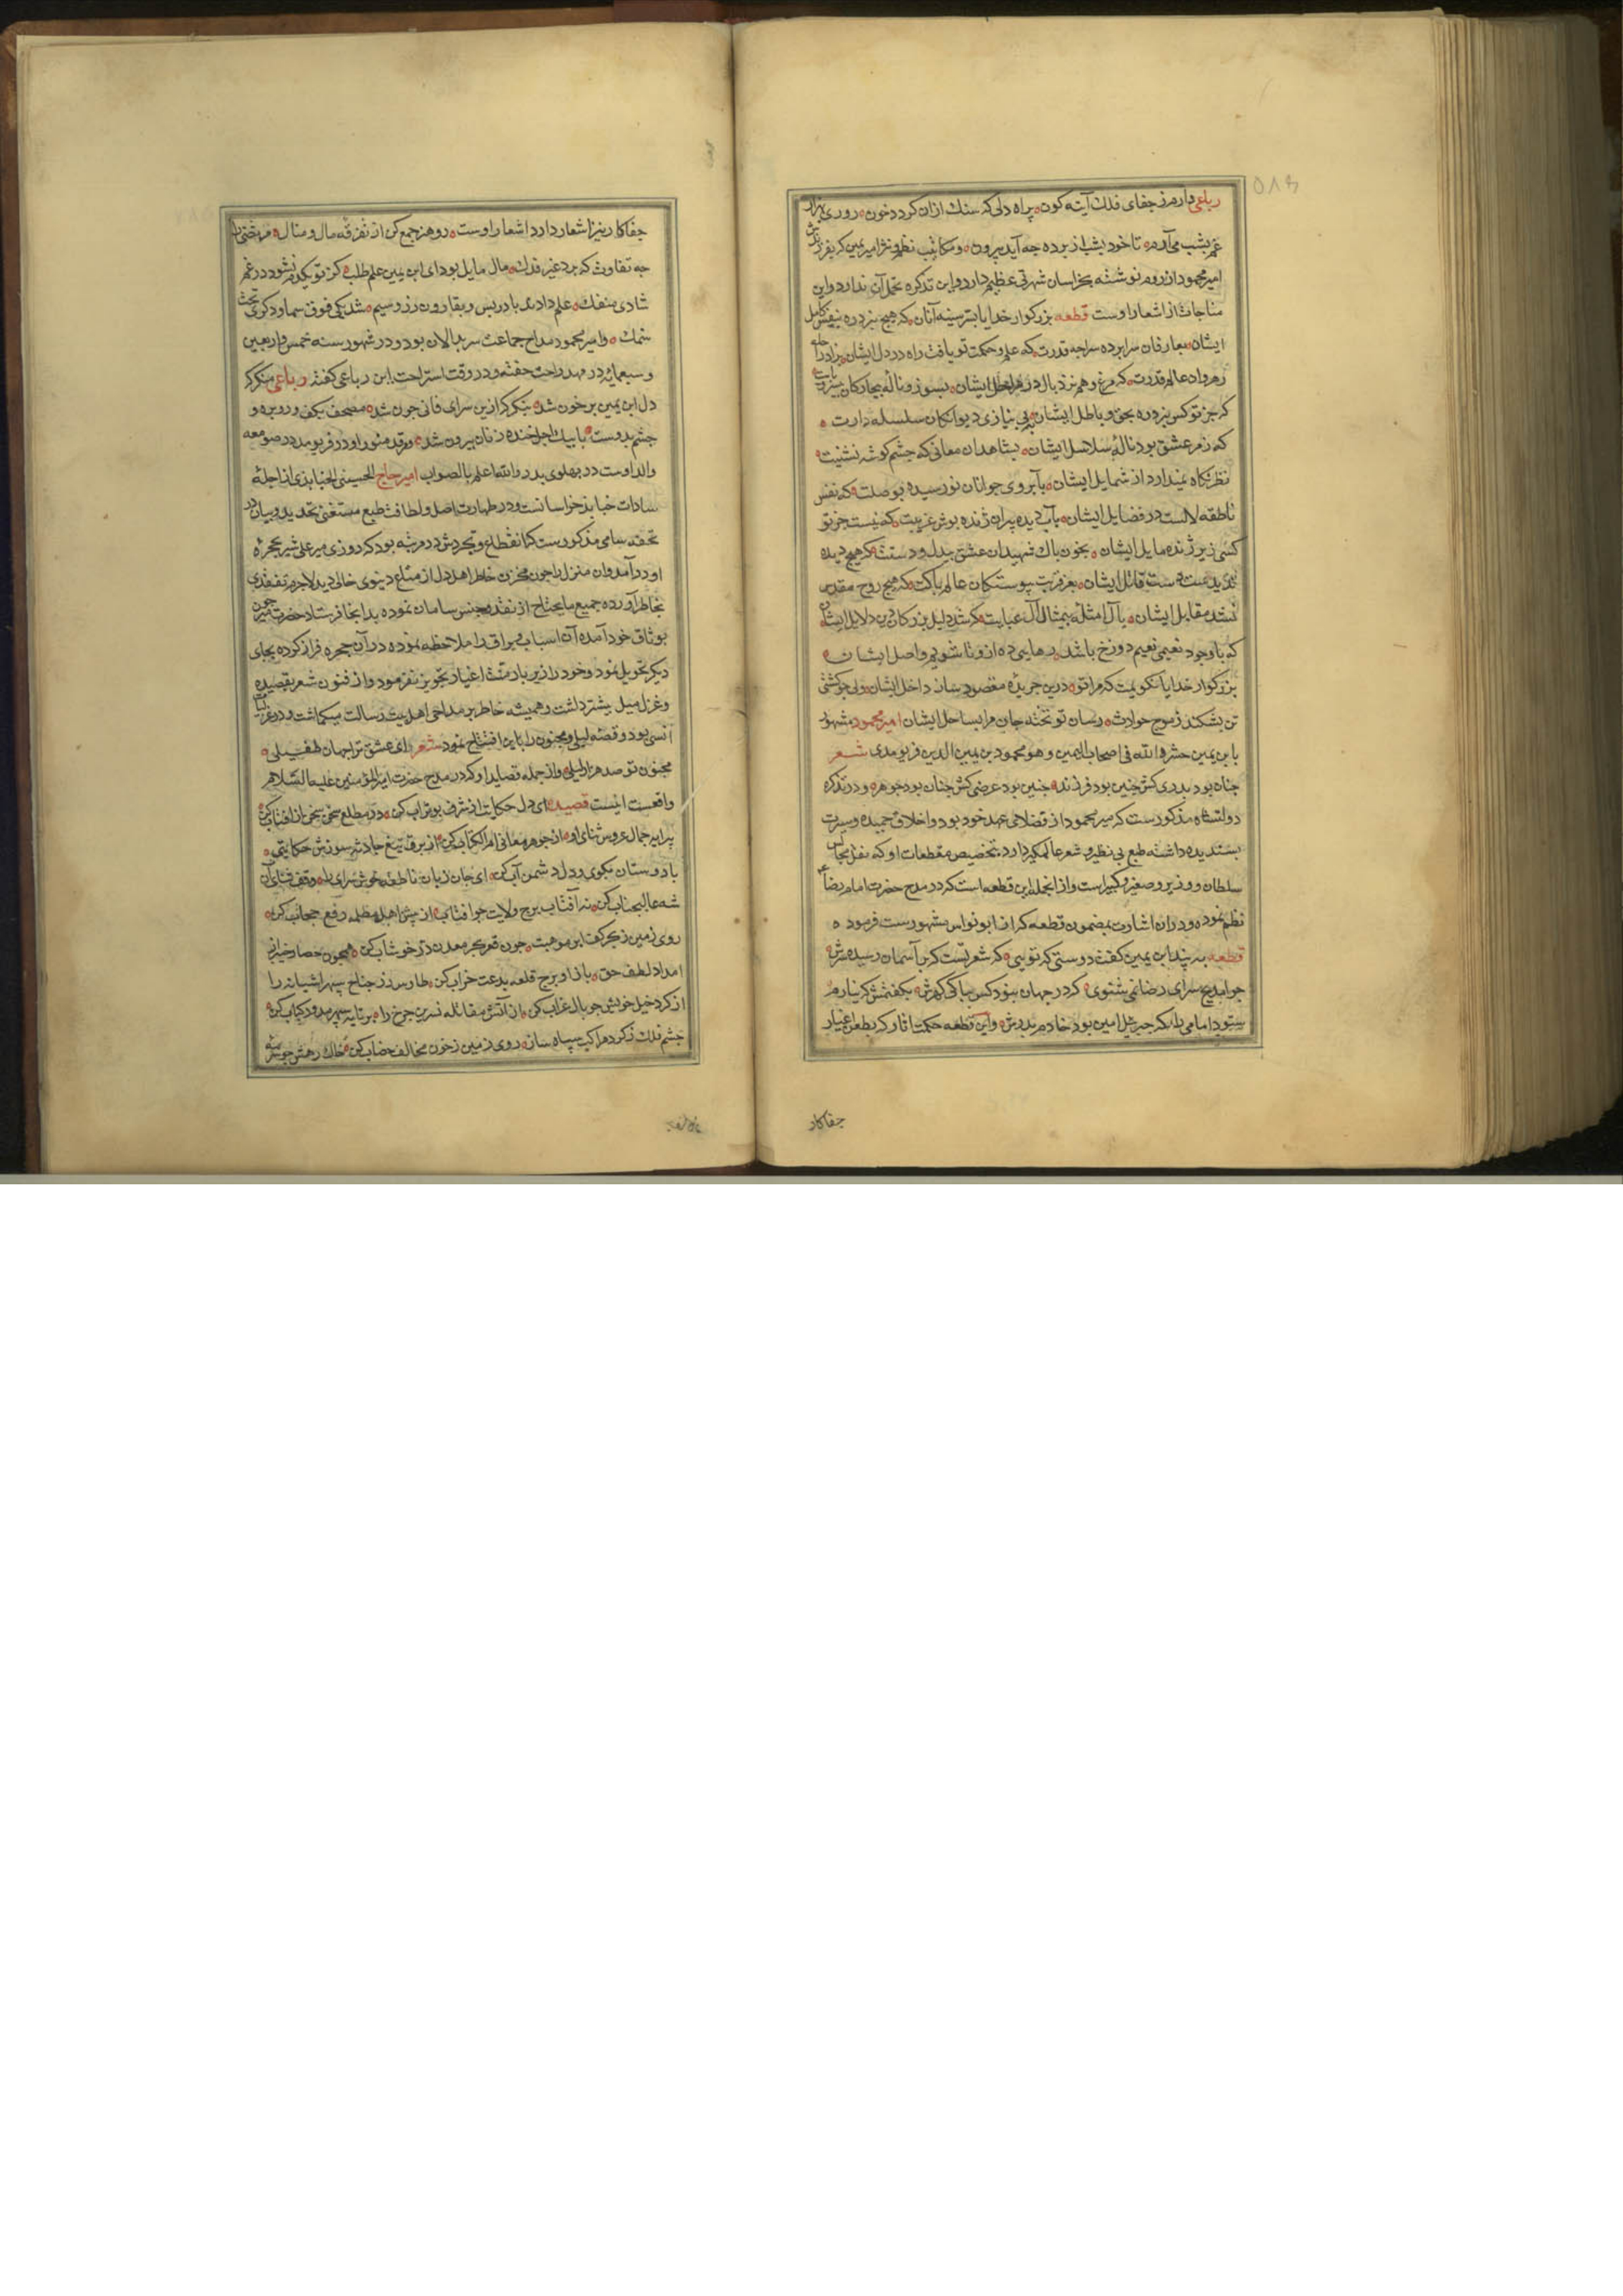 رباعی دارم ز جفای فلک آینه کون پر آه دلی که سنک ازان کردد خون روزی بهزار
غم بشب می‌آرم تا خود بشب از پرده چه آید بیرون و مکاتیب نظم و نثر امیر یمین که بفرزندش
امیر محمود از روم نوشته بخراسان شهرتی عظیم دارد و این تذکره تحمل آن ندارد و این
مناجات از اشعار اوست قطعه بزرکوار خدایا بسر سینه آنان که هیچ نبرد ره
ایشان بعارفان سراپرده سراچه قدرت که علم و حکمت تو یافت راه در دل ایشان
زهر واد عالم قدرت که مرغ وهم نزد بال در مراحل ایشان بسوز و ناله بیچارکان
که جز تو کس نبرد ره بحق و باطل ایشان به بی نیازی دیوانکان سلسله دارت
که زمر عشق بود ناله سلاسل ایشان بشاهدان معانی که چشم کوشه نشینت
نظر نکاه نمیدارد از شمایل ایشان بآبروی جوانان نورسیده بوصلت که نفس
ناطقه لالست در فضایل ایشان بآب دیده پیران ژنده پوش غریبت که نیست جز تو
کسی زیر ژنده مایل ایشان بخون پاک شهیدان عشق بیدل و دستت که هیچ دیده
ندیدست دست قاتل ایشان بعز قربت پیوستکان عالم پاکت که هیچ روح مقدس
نشد مقابل ایشان بآل امثله بیمثال آل عبایت که شد دلیل بزرکان دین دلایل ایشان
که با وجود نعیمی نعیم دوزخ باشد رهاییی ده ازو تا شویم واصل ایشان
بزرکوار خدایا نکویمت که مرا تو درین جریده مقصود ساز داخل ایشان ولی چو کشتی
تن بشکند ز موج حوادث رسان تو تخته جان مرا بساحل ایشان امیر محمود مشهور
بابن یمین حشره الله فی اصحاب الیمین و هو محمود بن یمین الدین فریومدی شعر
چنان بود پدری کش چنین بود فرزند چنین بود عرضی کش چنان بود جوهر و در تذکره
دولتشاه مذکورست که میر محمود از فضلای عهد خود بود و اخلاق حمیده و سیرت
پسندیده داشته طبع بی نظیر و شعر عالمکیر دارد بتخصیص مقطعات او که نقل مجالس
سلطان و وزیر و صغیر و کبیر است و از انجمله این قطعه است که در مدح حضرت امام رضا
نظم نموده و دران اشارت بمضمون قطعه که از ابو نواس مشهورست فرموده
قطعه به پند ابن یمین کفت دوستی که تویی که شعر تست که بر آسمان رسیده سرش
چرا مدیح سرای رضا نمی شنوی که در جهان نبود کس بپاکی کهرش بکفتمش که نیارم
ستود امامی را که جبرئیل امین بود خادم پدرش و این قطعه حکمت اثار که بطعن اغیار
جفاکار
جفاکار نیز اشعار دارد اشعار اوست رو هنر جمع کن از تفرقه مال و منال
چه تفاوت که برد غیر فدک مال مایل بود ای ابن یمین علم طلب کز تو یکدم نشود در غم
شادی منفک علم دادند بادریس و بقارون زر و سیم شد یکی فوق سما و دکری تحت
سمک و امیر محمود مداح جماعت سربدالان بود و در شهور سنه خمس و اربعین
و سبعمایه در مهد راحت خفته و در وقت استراحت این رباعی کفته رباعی منکر که
دل ابن یمین پر خون شد بنکر که ازین سرای فانی چون شد مصحف بکف و رو بره و
چشم بدوست با پیک اجل خنده زنان بیرون شد مرقد منور او در فریومد در صومعه
والد اوست در پهلوی پدر والله اعلم بالصواب امیر حاج الحسینی الجنابذی از اجله
سادات جنابذ خراسانست و در طهارت اصل و لطافت طبع مستغنی تحدید و بیان در
تحفه سامی مذکورست که انقطاع و تجردش در مرتبه بود که روزی میر علی شیر بحجره
او درآمد و ان منزل را چون مخزن خاطر اهل دل از متاع دنیوی خالی دید لاجرم تفقدی
بخاطر آورده جمیع مایحتاج از نقد و جنس سامان نموده بدانجا فرستاد حضرت میر چون
بوثاق خود آمده آن اسباب و یراق را ملاحظه نموده در آن حجره فراز کرده بجای
دیکر تحویل نمود و خود را زیر بار منت اغیار تجویز نفرمود و از فنون شعر بقصیده
و غزل میل بیشتر داشت و همیشه خاطر بر مداحی اهل بیت رسالت میکماشت و در غزلیات
انسی بود و قصه لیلی و مجنون را باین افتتاح نمود شعر ای عشق ترا جهان طفیلی
مجنون تو صد هزار لیلی و از جمله قصاید او که در مدح حضرت امیرالمؤمنین علیه السلام
واقعست اینست قصیده ای دل حکایت از شرف بوتراب کن در مطلع سخن سخن از افتاب کن
پیرایه جمال عروس ثنای او از جوهر معانی ام الکتاب کن از برق تیغ حادثه سوزش حکایتی
با دوستان بکوی و دل دشمن آب کن ای جان زبان ناطقه خوش سرای را وقف ثنای آن
شه عالیجناب کن نه آفتاب برج ولایت چو افتاب از پیش اهل مظلمه رفع حجاب کن
روی زمین ز بحر کف ابر موهبت چون قعر بحر معدن در خوشاب کن همچون حصار خیبر
امداد لطف حق بازا و برج قلعه بدعت خراب کن طاوس زر جناح سپهر اشیانه را
از کرد خیل خویش چو بال غراب کن از آتش مقاتله نسرین چرخ را بر تابه سپهر مدور کباب کن
چشم فلک ز کرد مراکب سیاه ساز روی زمین ز خون مخالف خضاب کن خاک رهش چو